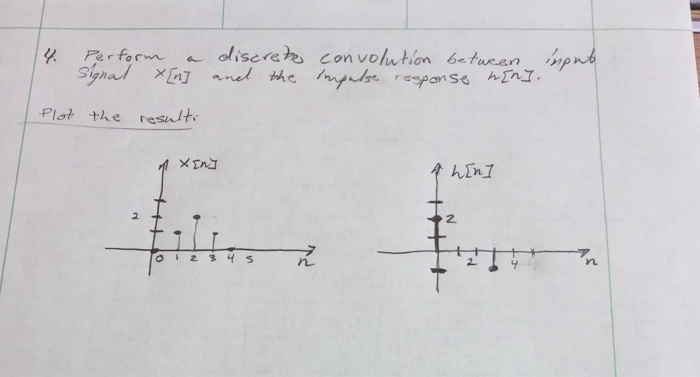 4. Perform a discrete convolution between input
signal x[n] and the impulse response h[n].
Plot the result:
x[n]
2
0 1 2 3 4 5
n
h[n]
2
2 4
n